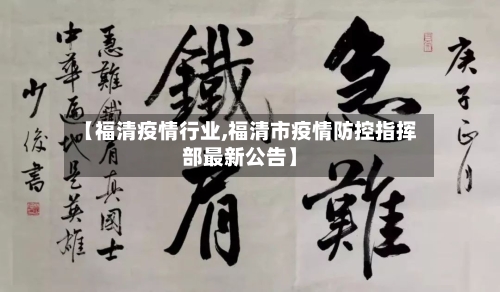 庚子正月
急難
鐵肩
急難鐵肩真國士
中華遍地是英雄
少俊書
【福清疫情行业,福清市疫情防控指挥
部最新公告】